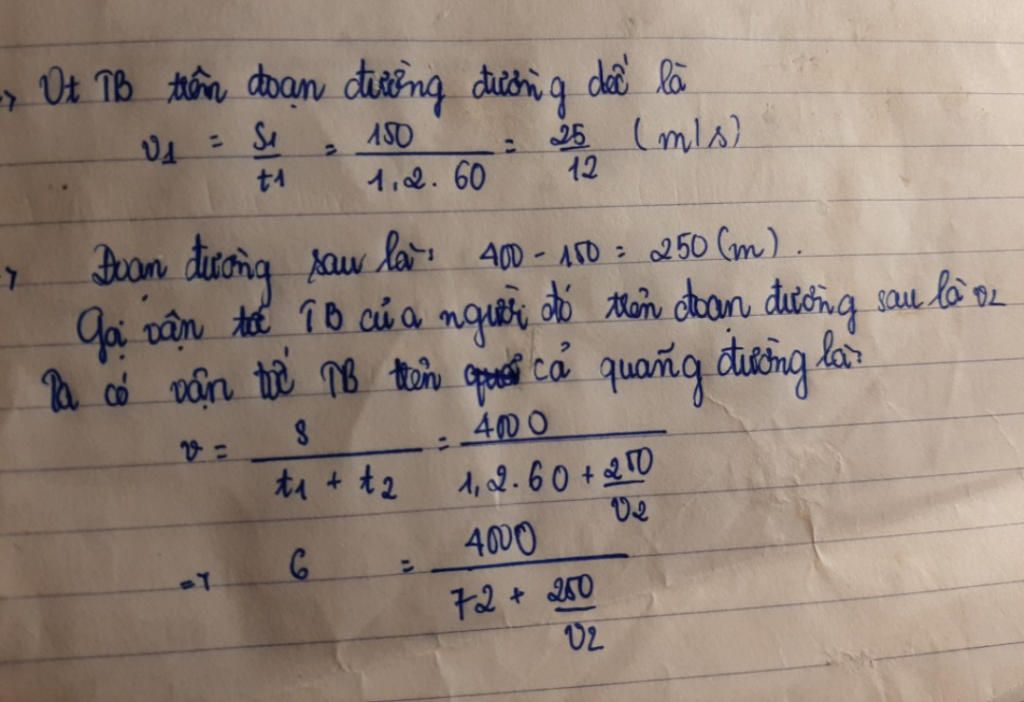 -> Vt TB trên đoạn đường đường dốc là
v1 = S1/t1 = 150/1,2.60 = 25/12 (m/s)
-> Đoạn đường sau là: 400 - 150 = 250 (m).
Gọi vận tốc TB của người đó trên đoạn đường sau là v2
Ta có vận tốc TB trên cả quãng đường là:
v = s/t1 + t2 = 4000/1,2.60 + 250/v2
=> 6 = 4000/72 + 250/v2